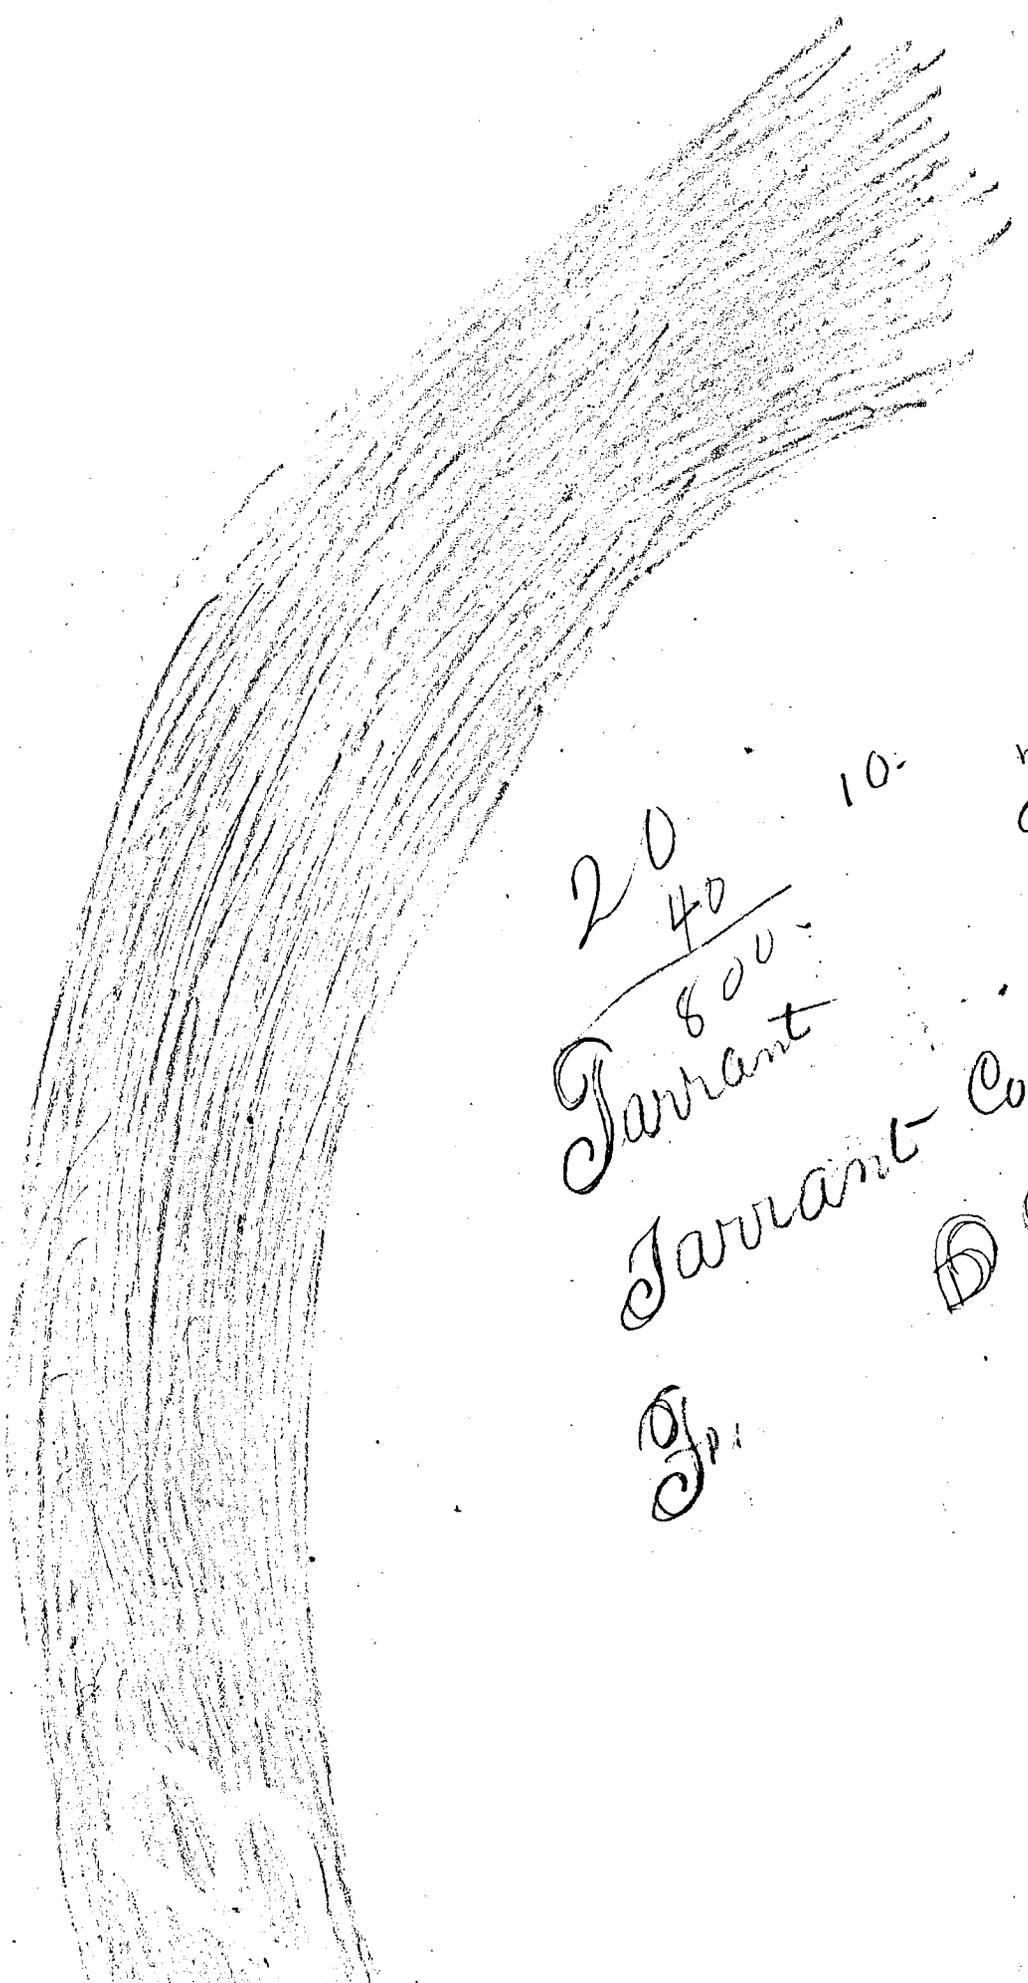 10.
20
40
800.
Tarrant
Tarrant Co